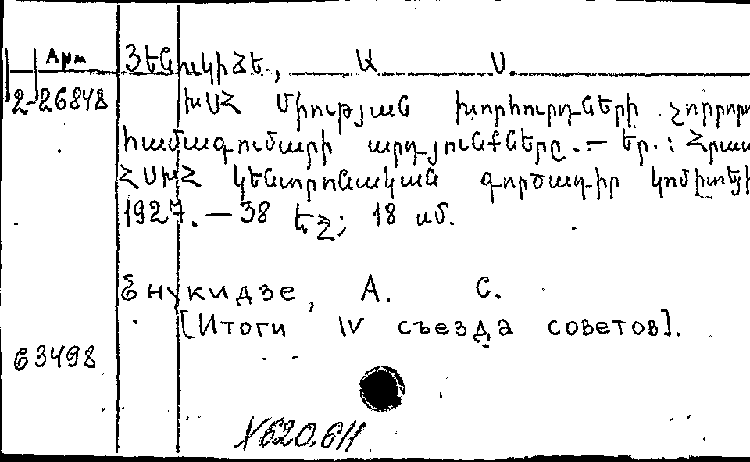 Арм
2-26848
Յենուկիձե, Ա Ս.
ԽՍՀ Միության խորհուրդների չորրորդ
համագումարի արդյունքները.— Եր.: Հրատ
ՀՍԽՀ կենտրոնական գործադիր կոմիտեի
1927. — 38 եջ; 18 սմ.
Енукидзе, А. С.
[Итоги IV съезда советов].
63498